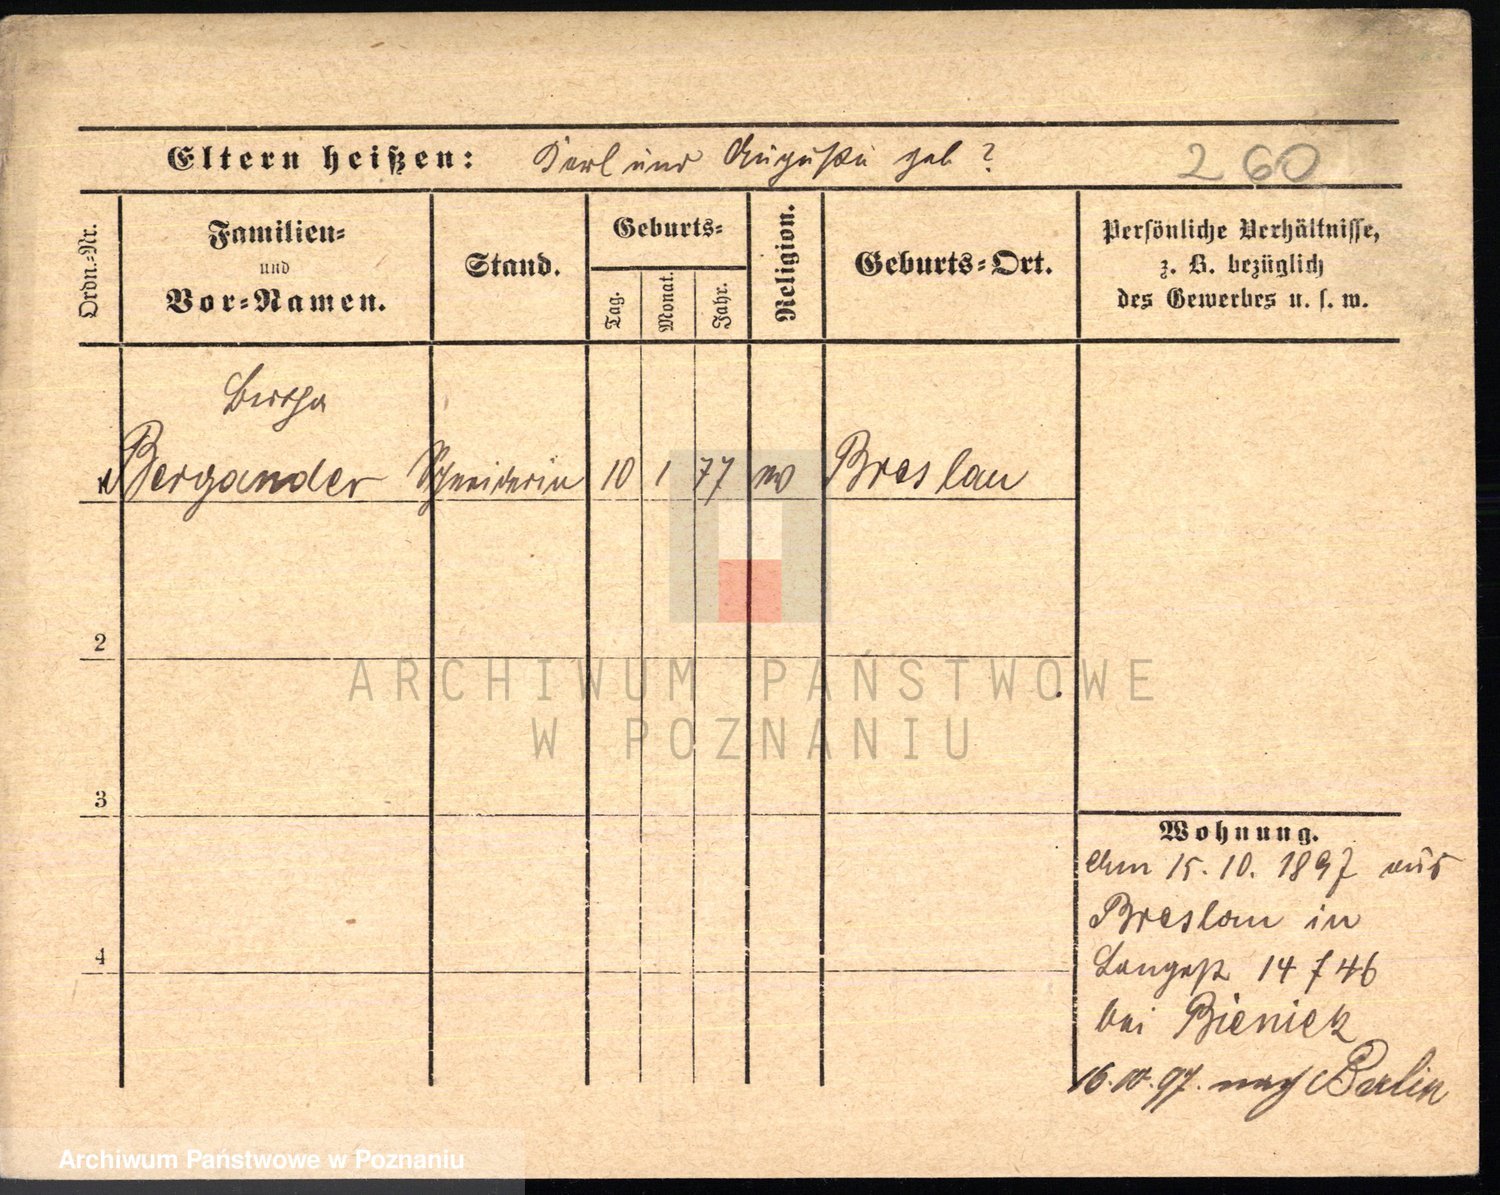 Eltern heißen: Karl und Auguste geb ?
260
Ordn.-Nr.
Familien-
und
Vor-Namen.
Stand.
Geburts-
Tag.
Monat.
Jahr.
Religion.
Geburts-Ort.
Persönliche Verhältnisse,
z. B. bezüglich
des Gewerbes u. s. w.
Bertha
Bergander Schneiderin 10 1 77 Breslau
2
3
4
Wohnung.
Am 15. 10. 1897 aus
Breslau in
Langestr 14 f 46
bei Bieniek
16.10.97. nach Berlin
ARCHIWUM PAŃSTWOWE
W POZNANIU
Archiwum Państwowe w Poznaniu